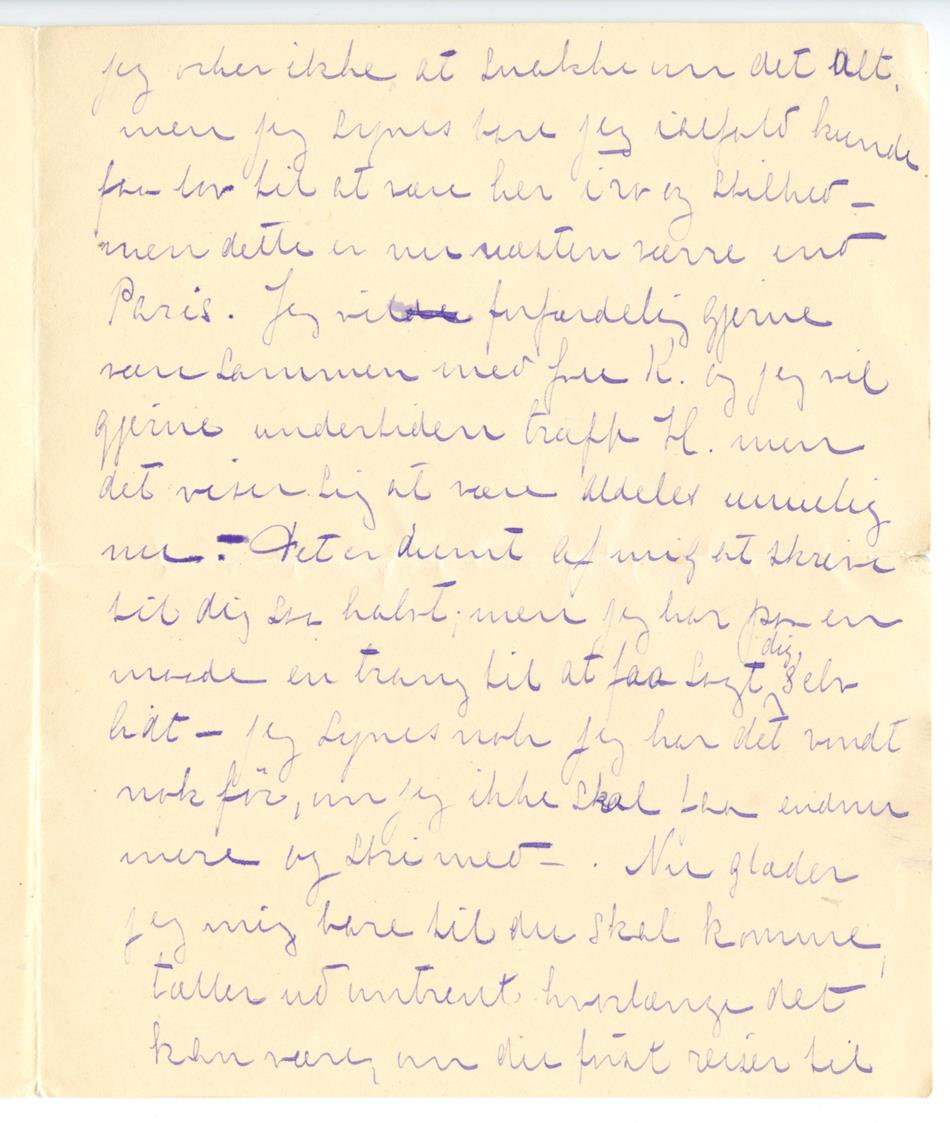 jeg orker ikke at snakke om det alt,
men jeg synes bare jeg ialfald kunde
faa lov til at være her i ro og stilhed –
men dette er nu næsten værre end
Paris. Jeg vilde forfærdelig gjerne
være sammen med fru K. og jeg vil
gjerne undertiden træffe H. men
det viser sig at være aldeles umulig
nu. – Det er dumt af mig at skrive
til dig saa halvt; men jeg har paa en
maade en trang til at faa sagt dig, selv
lidt – jeg synes nok jeg har det vondt
nok för, om jeg ikke skal faa endnu
mere og stri med – . Nu glæder
jeg mig bare til du skal komme,
tæller ud omtrent hvorlænge det
kan være, om du først reiser til